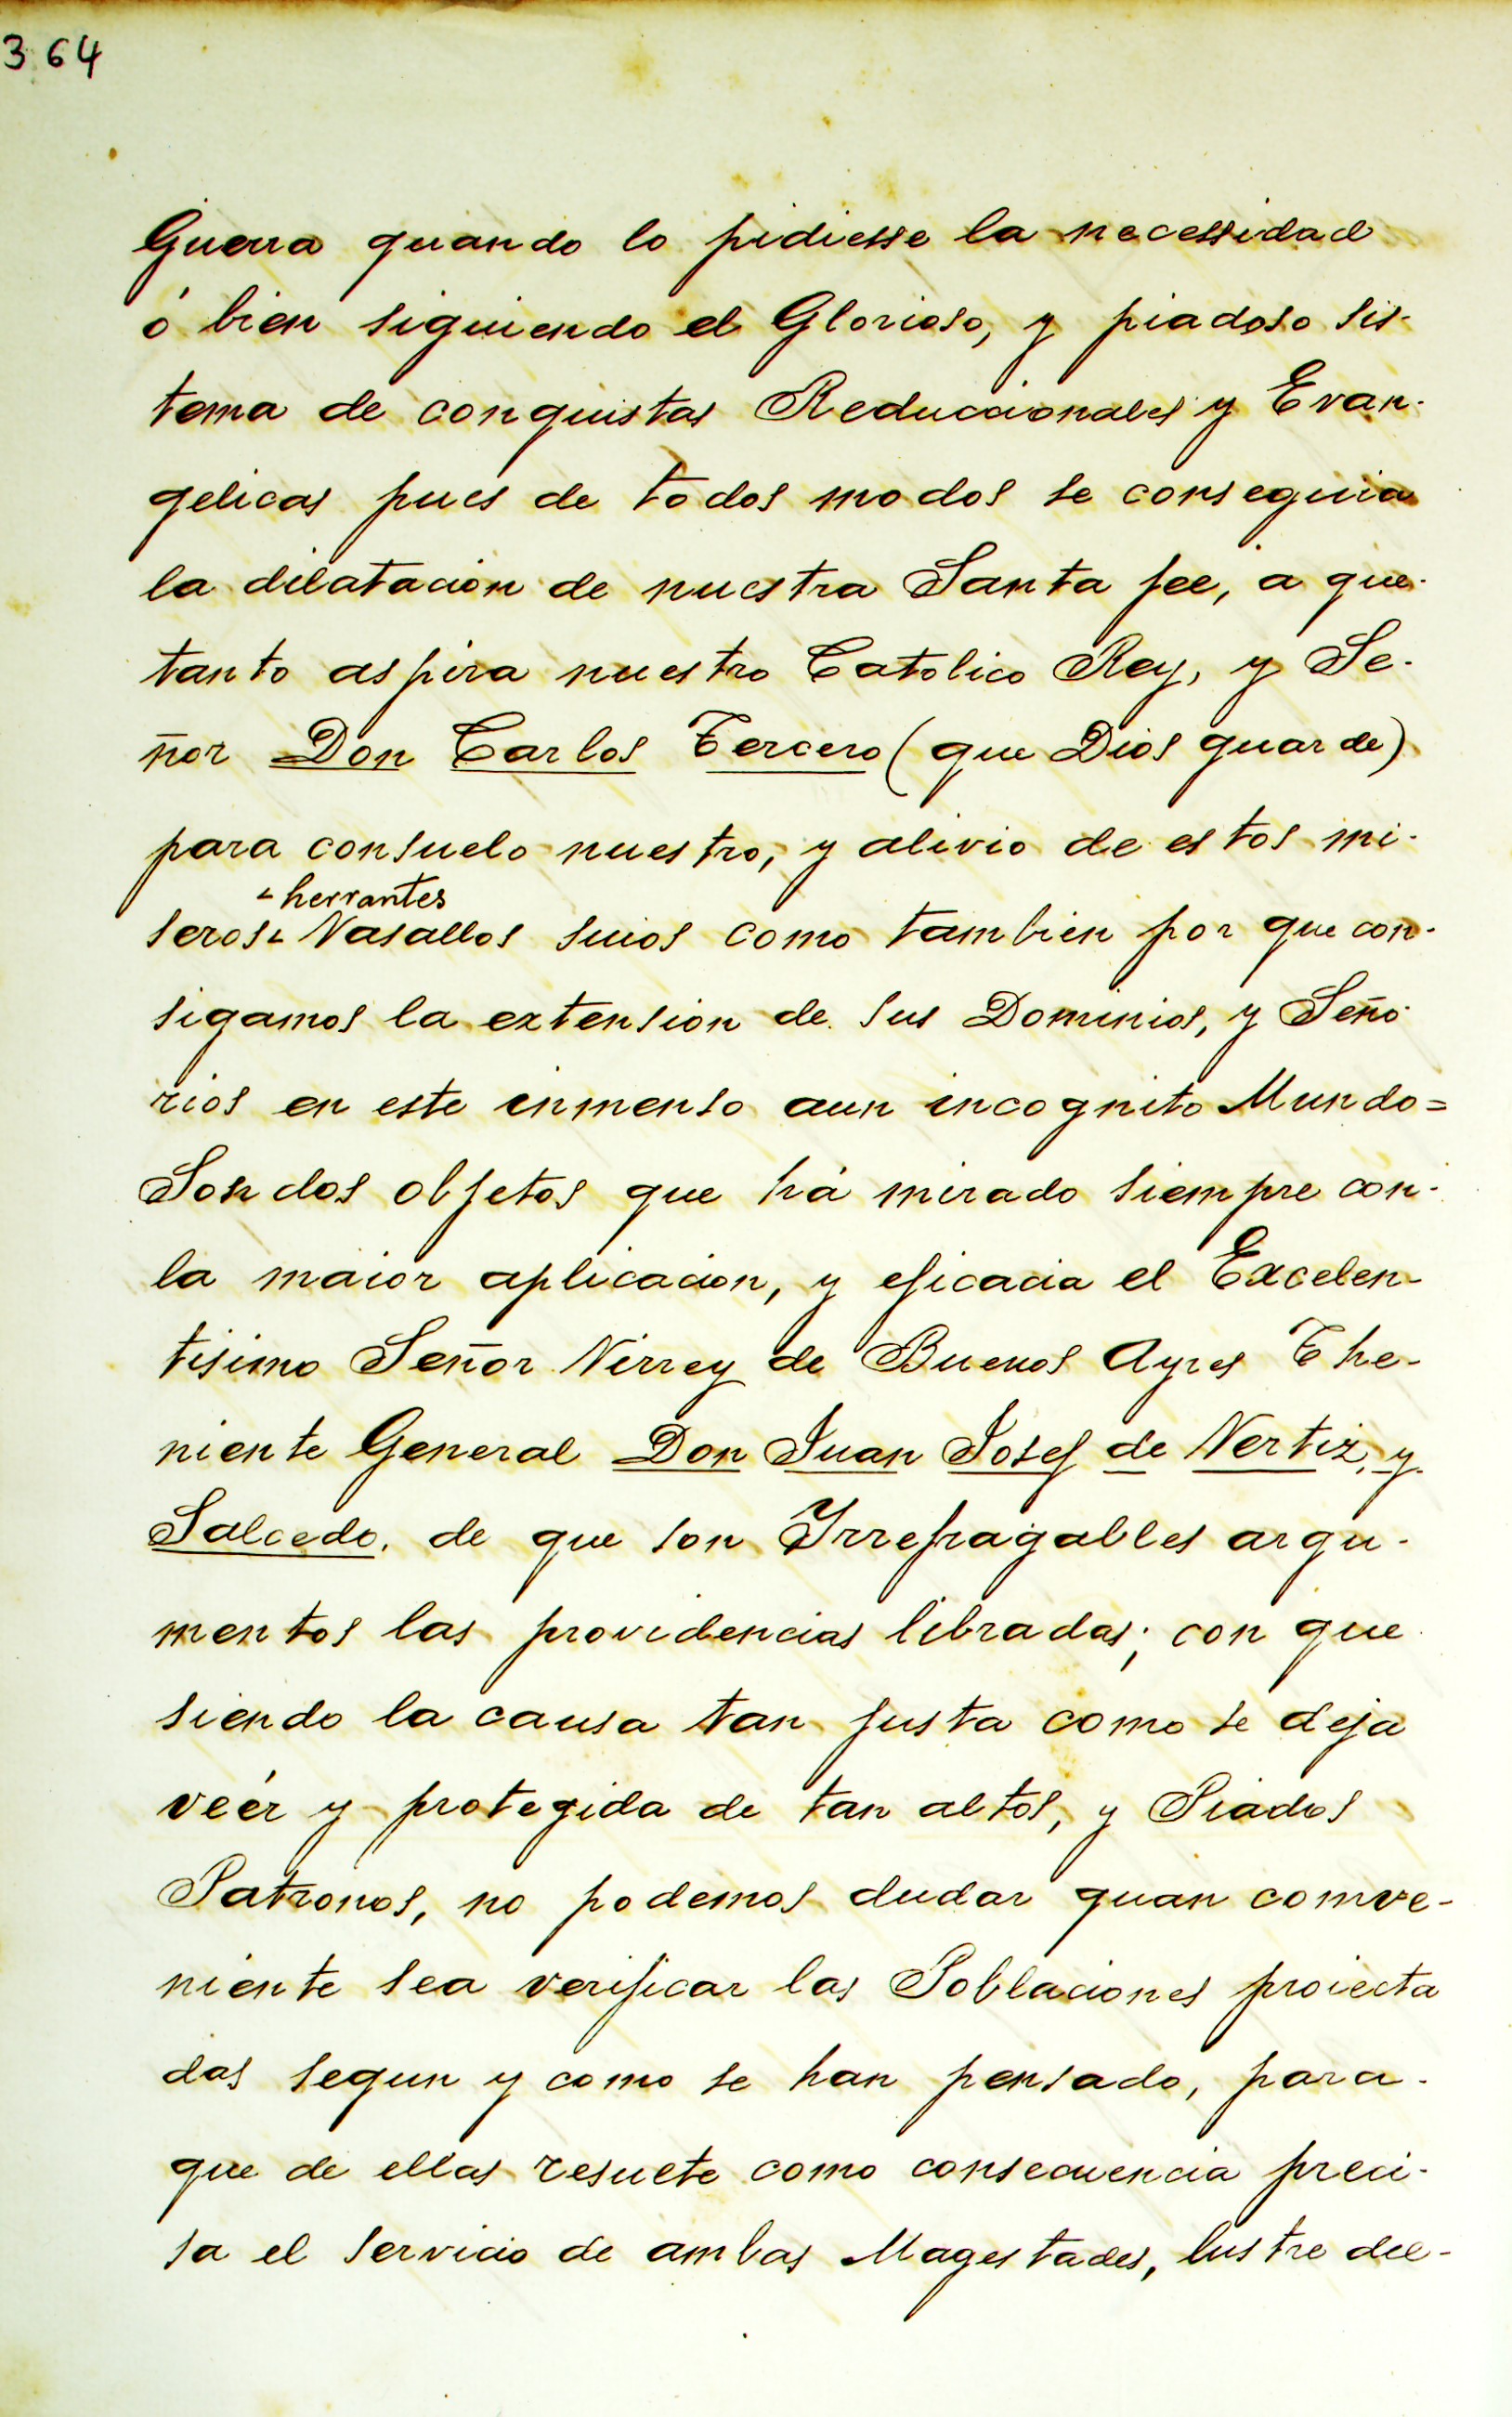 364
Guerra quando lo pidiesse la necessidad
ó bien siguiendo el Glorioso, y piadoso sis-
tema de conquistas Reduccionales y Evan-
gelicas pues de todos modos se conseguia
la dilatacion de nuestra Santa fee, a que-
tanto aspira nuestro Catolico Rey, y Se-
ñor Don Carlos Tercero (que Dios guarde)
para consuelo nuestro, y alivio de estos mi-
herrantes
seros Vasallos suios como tambien por que con-
sigamos la extension de sus Dominios, y Seño-
rios en este inmenso aun incognito Mundo=
Son dos objetos que há mirado siempre con-
la maior aplicacion, y eficacia el Excelen-
tisimo Señor Virrey de Buenos Ayres The-
niente General Don Juan Josef de Vertiz, y
Salcedo, de que son Yrrefragables argu-
mentos las providencias libradas; con que
siendo la causa tan justa como se deja
veér y protegida de tan altos, y Piados
Patronos, no podemos dudar quan comve-
niente sea verificar las Poblaciones proiecta
das segun y como se han pensado, para-
que de ellas resulte como consecuencia preci-
sa el servicio de ambas Magestades, lustre del-